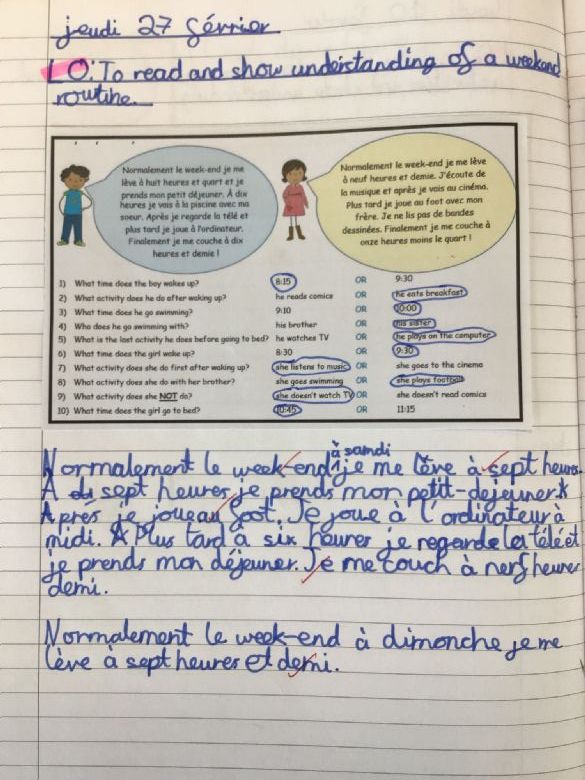 jeudi 27 février
LO: To read and show understanding of a weekend
routine.
Normalement le week-end je me
lève à huit heures et quart et je
prends mon petit déjeuner. À dix
heures je vais à la piscine avec ma
soeur. Après je regarde la télé et
plus tard je joue à l'ordinateur.
Finalement je me couche à dix
heures et demie !
Normalement le week-end je me lève
à neuf heures et demie. J'écoute de
la musique et après je vais au cinéma.
Plus tard je joue au foot avec mon
frère. Je ne lis pas de bandes
dessinées. Finalement je me couche à
onze heures moins le quart !
1) What time does the boy wakes up? 8:15 OR 9:30
2) What activity does he do after waking up? he reads comics OR he eats breakfast
3) What time does he go swimming? 9:10 OR 10:00
4) Who does he go swimming with? his brother OR his sister
5) What is the last activity he does before going to bed? he watches TV OR he plays on the computer
6) What time does the girl wake up? 8:30 OR 9:30
7) What activity does she do first after waking up? she listens to music OR she goes to the cinema
8) What activity does she do with her brother? she goes swimming OR she plays football
9) What activity does she NOT do? she doesn't watch TV OR she doesn't read comics
10) What time does the girl go to bed? 10:45 OR 11:15
à samdi
Normalement le week-end je me lève à sept heures.
À sept heures je prends mon petit-dejeuner.*
Apres je joue au foot. Je joue à l'ordinateur à
midi. * Plus tard à six heures je regarde la télé et
je prends mon déjeuner. Je me couch à nerf heures
demi.
Normalement le week-end à dimonche je me
lève à sept heures et demi.